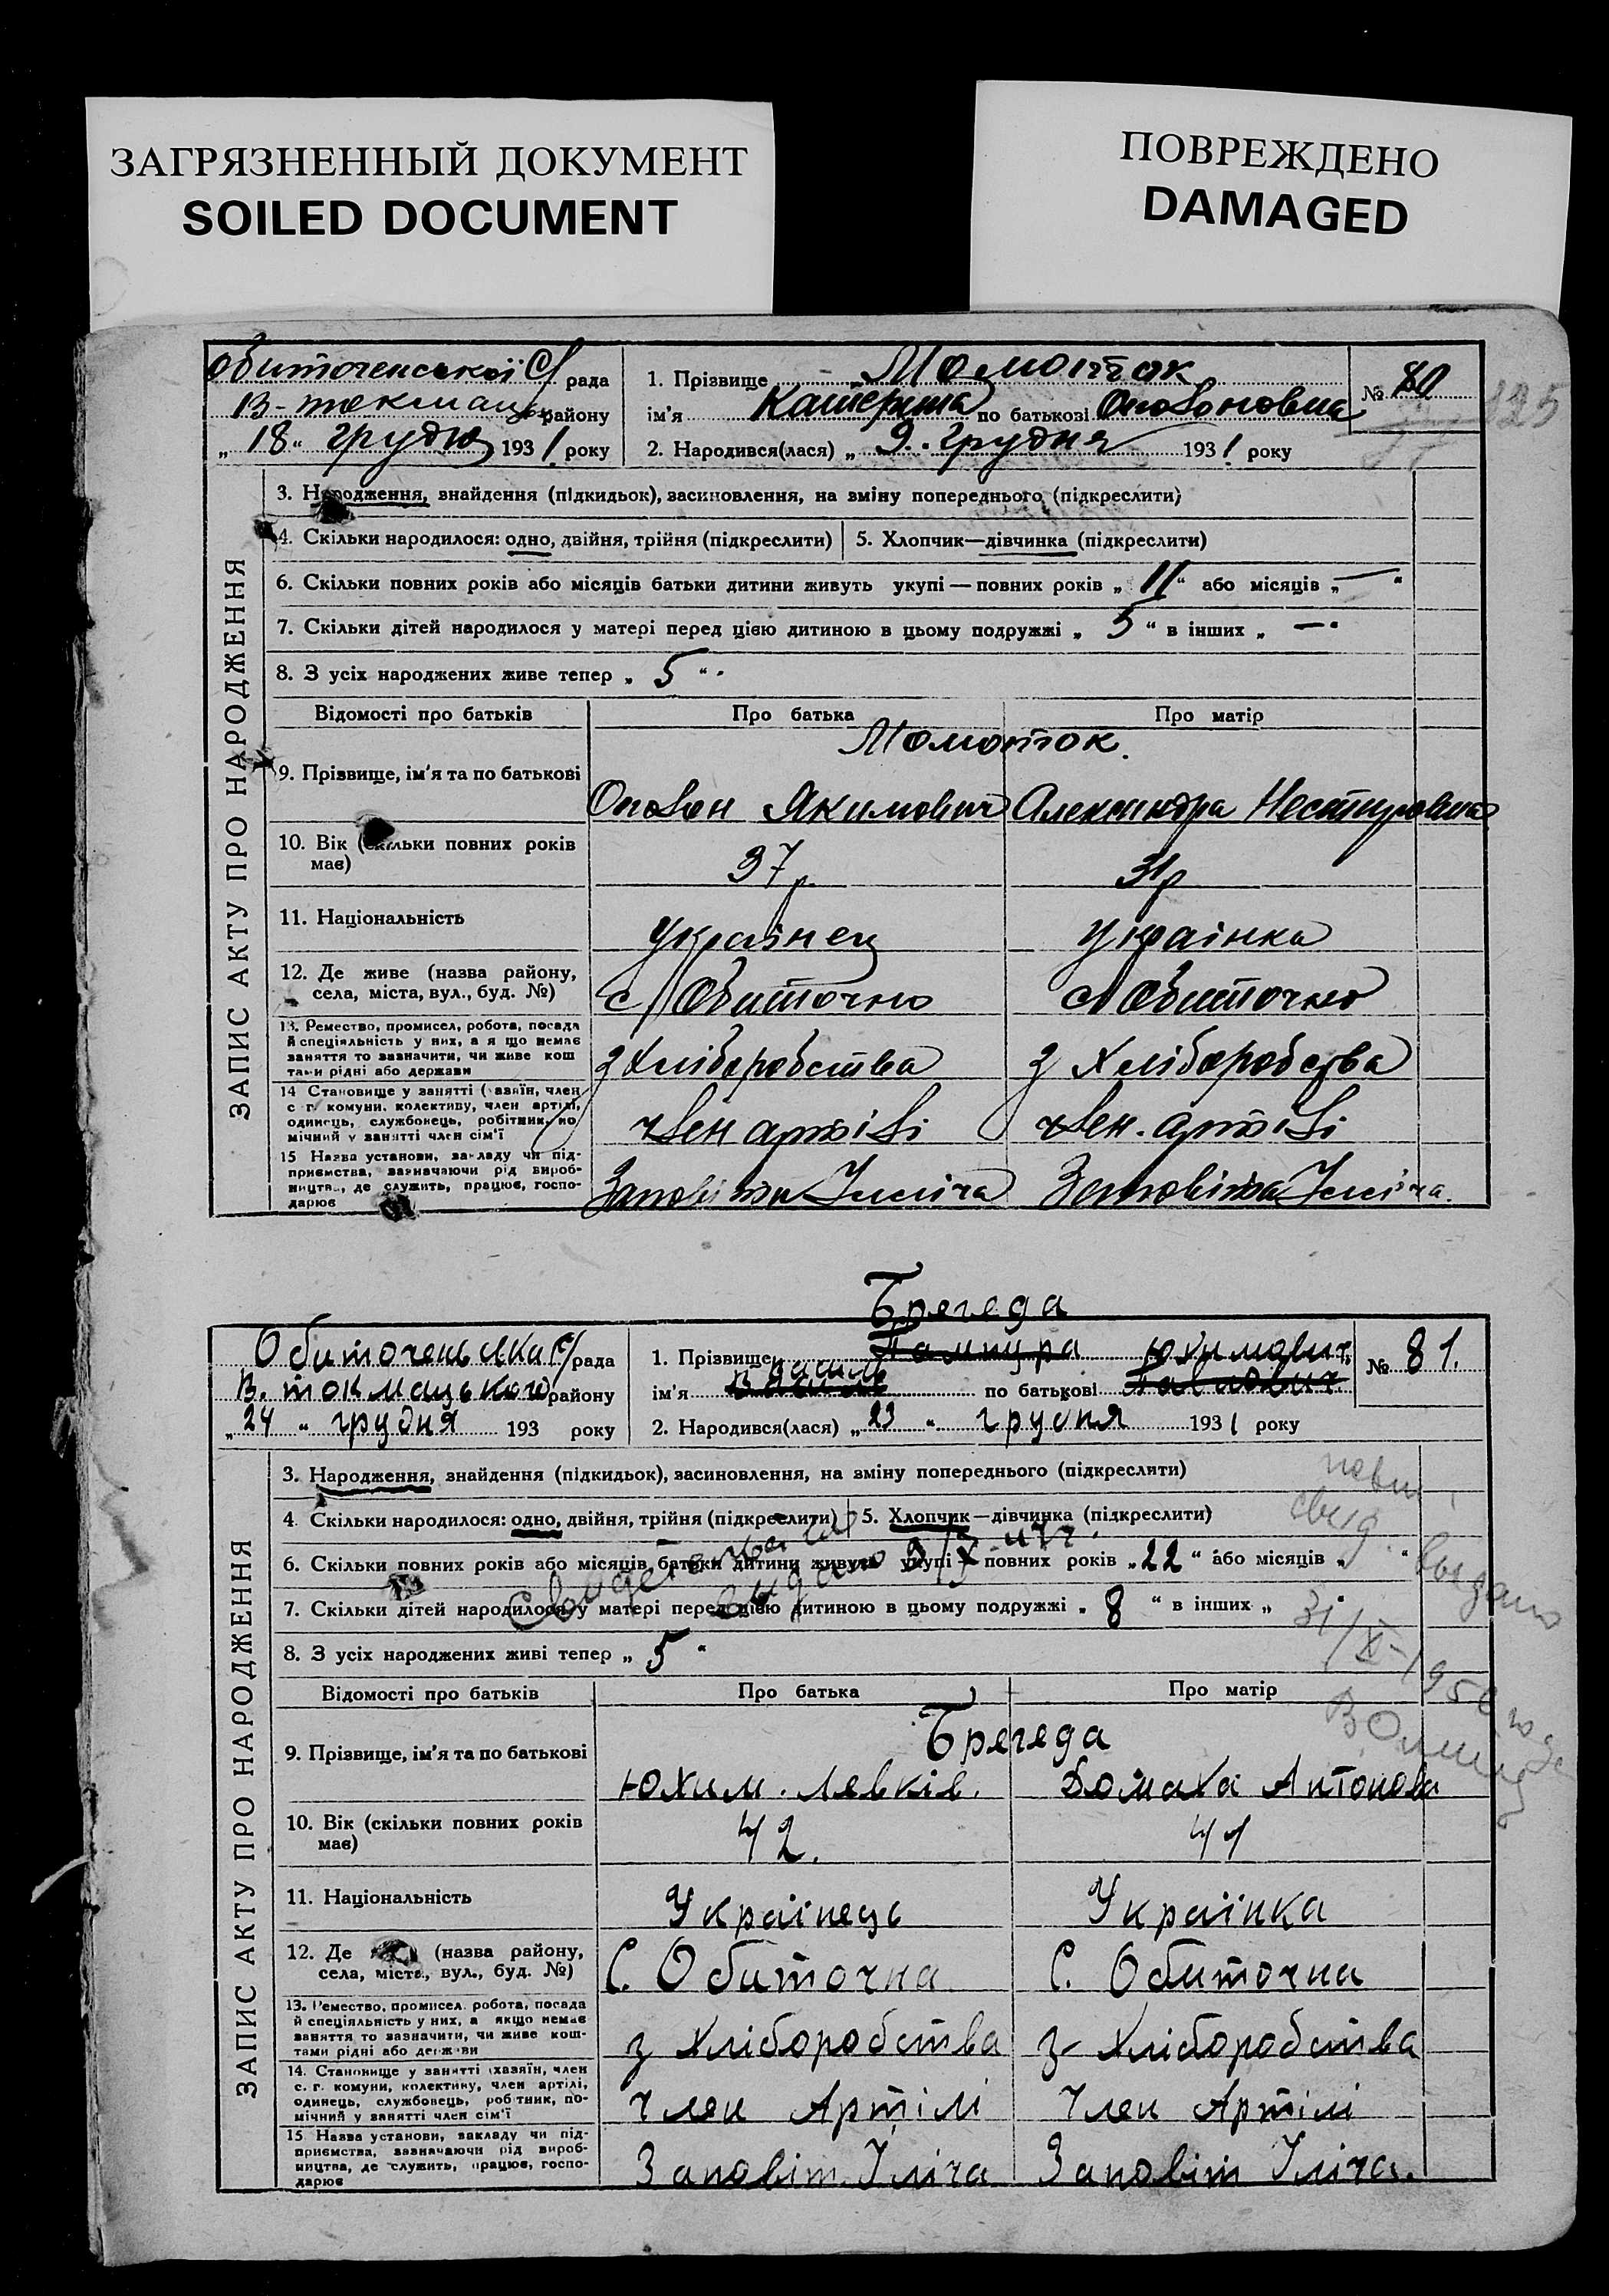 ЗАГРЯЗНЕННЫЙ ДОКУМЕНТ
SOILED DOCUMENT
ПОВРЕЖДЕНО
DAMAGED
Обиточенської С/ рада
В-токмацьк району
„ 18 “ грудня 1931 року
1. Прізвище Момонток
ім'я Катерина по батькові
2. Народився(лася) „ 9. грудня 1931 року
№ 80
125
ЗАПИС АКТУ ПРО НАРОДЖЕННЯ
3. Народження, знайдення (підкидьок), засиновлення, на зміну попереднього (підкреслити)
4. Скільки народилося: одно, двійня, трійня (підкреслити)
5. Хлопчик—дівчинка (підкреслити)
6. Скільки повних років або місяців батьки дитини живуть укупі — повних років „ 11 “ або місяців „ — “
7. Скільки дітей народилося у матері перед цією дитиною в цьому подружжі „ 5 “ в інших „ — “
8. З усіх народжених живе тепер „ 5 “
Відомості про батьків
Про батька
Про матір
9. Прізвище, ім'я та по батькові
Момонток.
Якимович
Александра Нестировна
10. Вік (скільки повних років
має)
37 р.
31 р
11. Національність
Украінец
Украінка
12. Де живе (назва району,
села, міста, вул., буд. №)
с/ Обиточно
с/ Обиточно
13. Ремество, промисел, робота, посада
й спеціяльність у них, а я що немає
заняття то зазначити, чи живе кош
тами рідні або держави
з Хліборобства
з Хліборобства
14 Становище у занятті (хазяїн, член
с г. комуни. колективу, член артілі,
одинець, службовець, робітник, по
мічний у занятті член сім'ї
член артілі
член. артілі
15 Назва установи, закладу чи під-
приємства, зазначаючи рід вироб-
ництва, де служить, працює, госпо-
дарює
Заповіта Ілліча
Заповіта Ілліча.
Брегеда
Обиточеньська С/ рада
В. токмацького району
„ 24 “ грудня 193 року
1. Прізвище Пампура
Юхимович
ім'я по батькові Павлович.
2. Народився(лася) „ 23 “ грудня 1931 року
№ 81.
ЗАПИС АКТУ ПРО НАРОДЖЕННЯ
3. Народження, знайдення (підкидьок), засиновлення, на зміну попереднього (підкреслити)
4. Скільки народилося: одно, двійня, трійня (підкреслити)
5. Хлопчик—дівчинка (підкреслити)
6. Скільки повних років або місяців батьки дитини живуть укупі — повних років „ 22 “ або місяців „ “
7. Скільки дітей народилося у матері перед цією дитиною в цьому подружжі „ 8 “ в інших „
8. З усіх народжених живі тепер „ 5 “
свид.
выдано
31/X-195
Відомості про батьків
Про батька
Про матір
9. Прізвище, ім'я та по батькові
Брегеда
Юхим. Левків.
Домаха Антонова
10. Вік (скільки повних років
має)
42.
41
11. Національність
Українець
Українка
12. Де (назва району,
села, міста, вул., буд. №)
С. Обиточна
С. Обиточна
13. Ремество, промисел. робота, посада
й спеціяльність у них, а якщо немає
заняття то зазначити, чи живе кош-
тами рідні або держави
з Хліборобства
з Хліборобства
14. Становище у занятті (хазяїн, член
с. г. комуни, колективу, член артілі,
одинець, службовець, робітник, по-
мічний у занятті член сім'ї
Член Артілі
Член Артілі
15 Назва установи, закладу чи під-
приємства, зазначаючи рід вироб-
ництва, де служить, працює, госпо-
дарює
Заповіт Іліча
Заповіт Іліча.